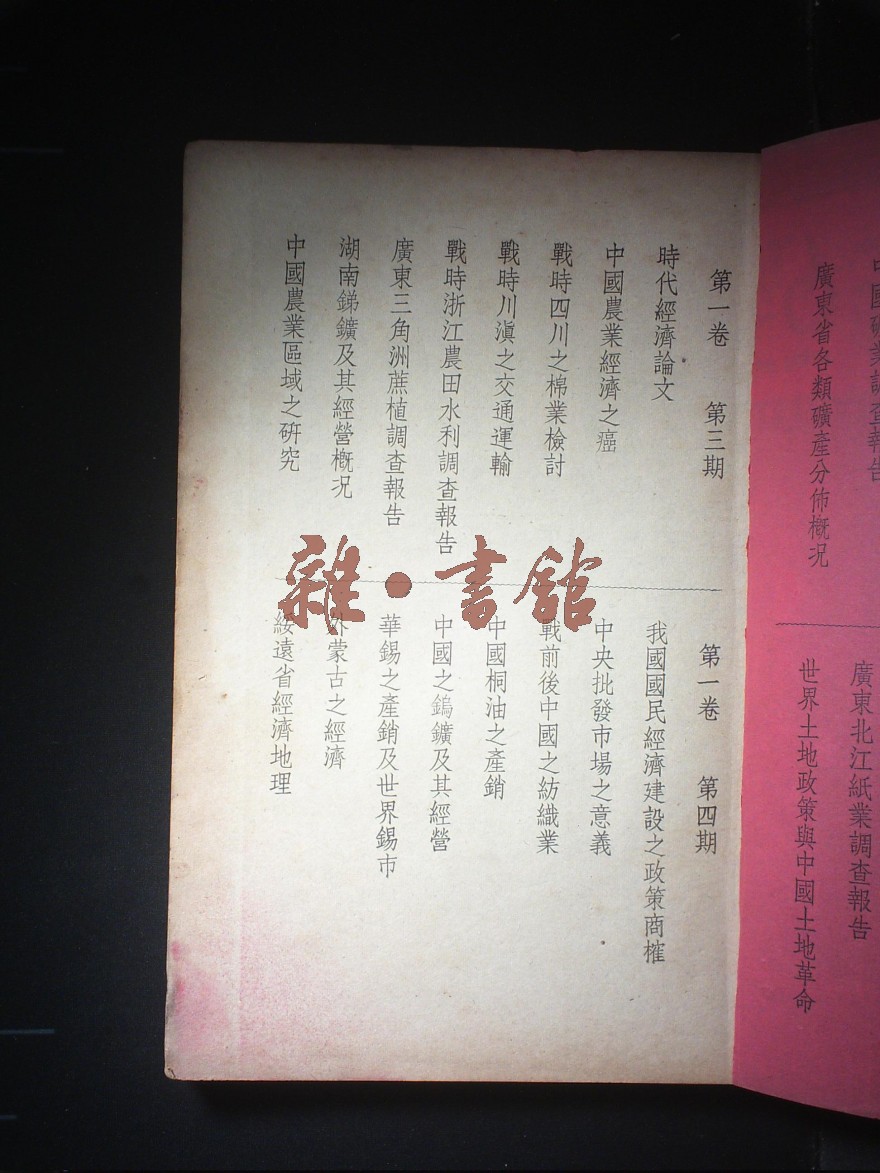 中國礦業調查報告
廣東省各類礦產分佈概况
廣東北江紙業調查報告
世界土地政策與中國土地革命
第一卷 第三期
時代經濟論文
中國農業經濟之癌
戰時四川之棉業檢討
戰時川滇之交通運輸
戰時浙江農田水利調查報告
廣東三角洲蔗植調查報告
湖南銻鑛及其經營概况
中國農業區域之研究
雜·書館
第一卷 第四期
我國國民經濟建設之政策商榷
中央批發市場之意義
戰前後中國之紡織業
中國桐油之產銷
中國之鎢鑛及其經營
華錫之產銷及世界錫市
外蒙古之經濟
綏遠省經濟地理